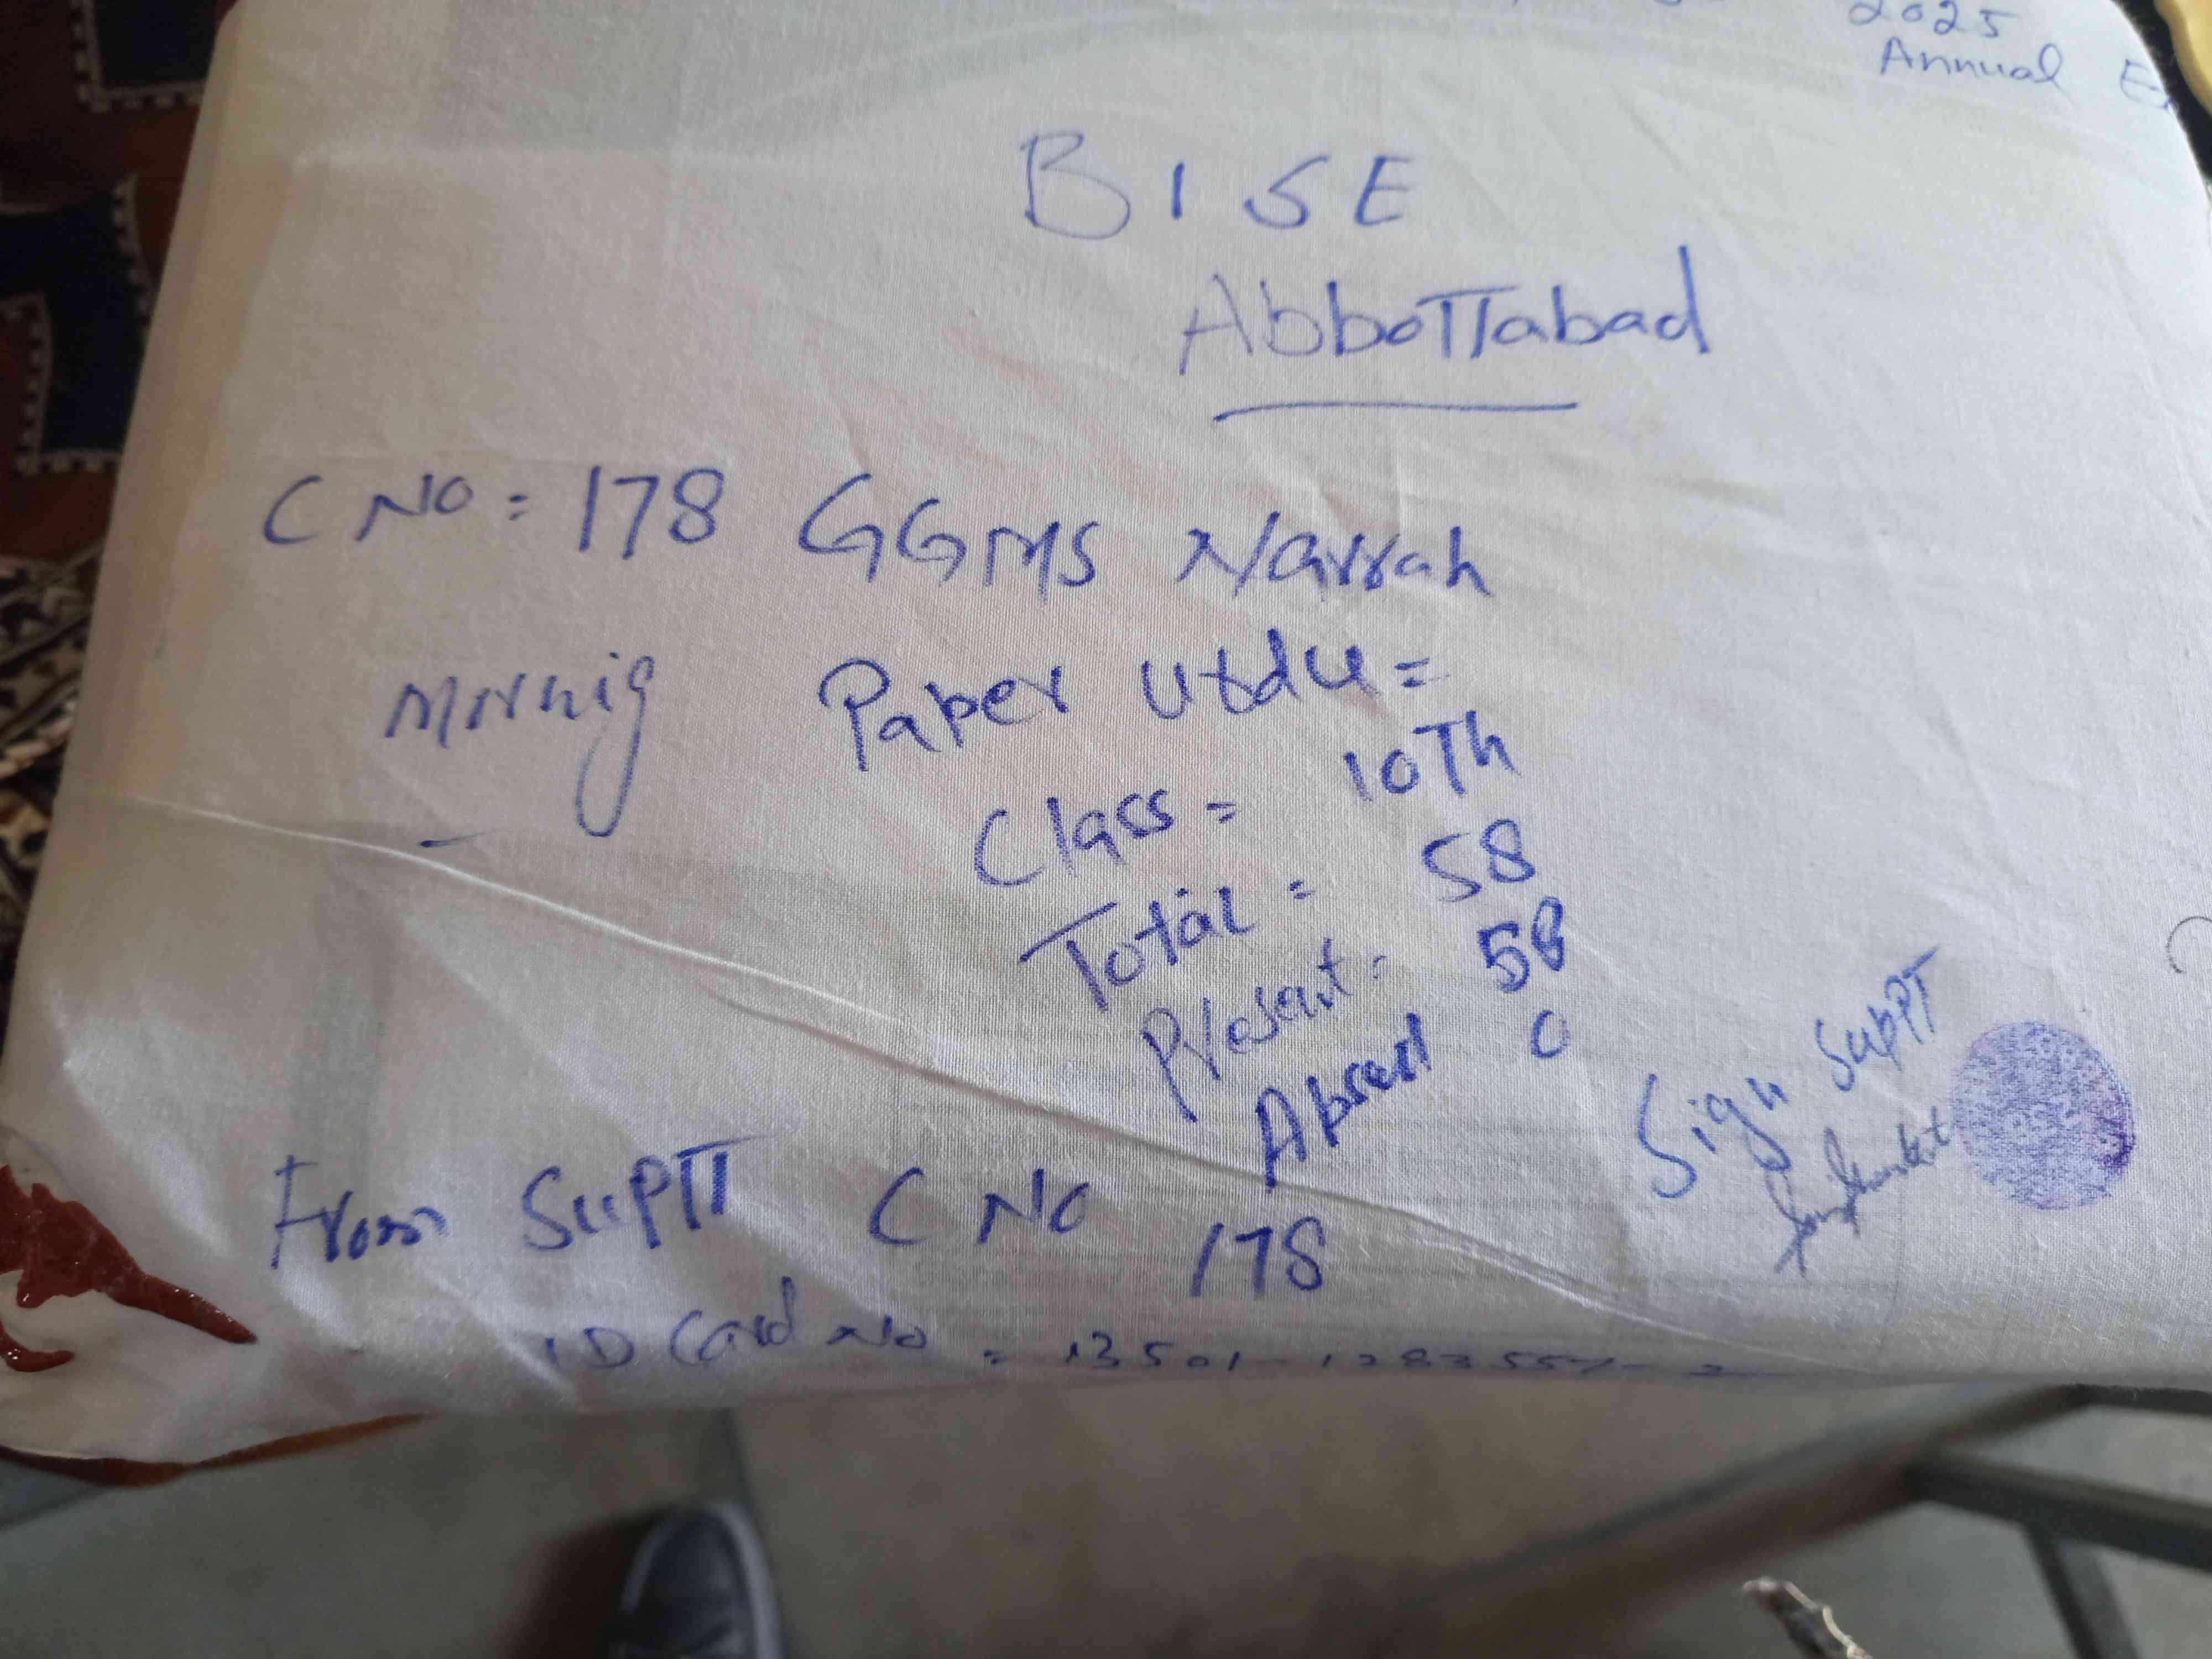 2025
Annual
BISE
Abbottabad
C No = 178 GGMS Narrah
Mrnnig Paper Urdu =
Class = 10Th
Total = 58
Present = 58
Absent 0
Sign Suptt
From Suptt C No 178
ID Card No = 13501-